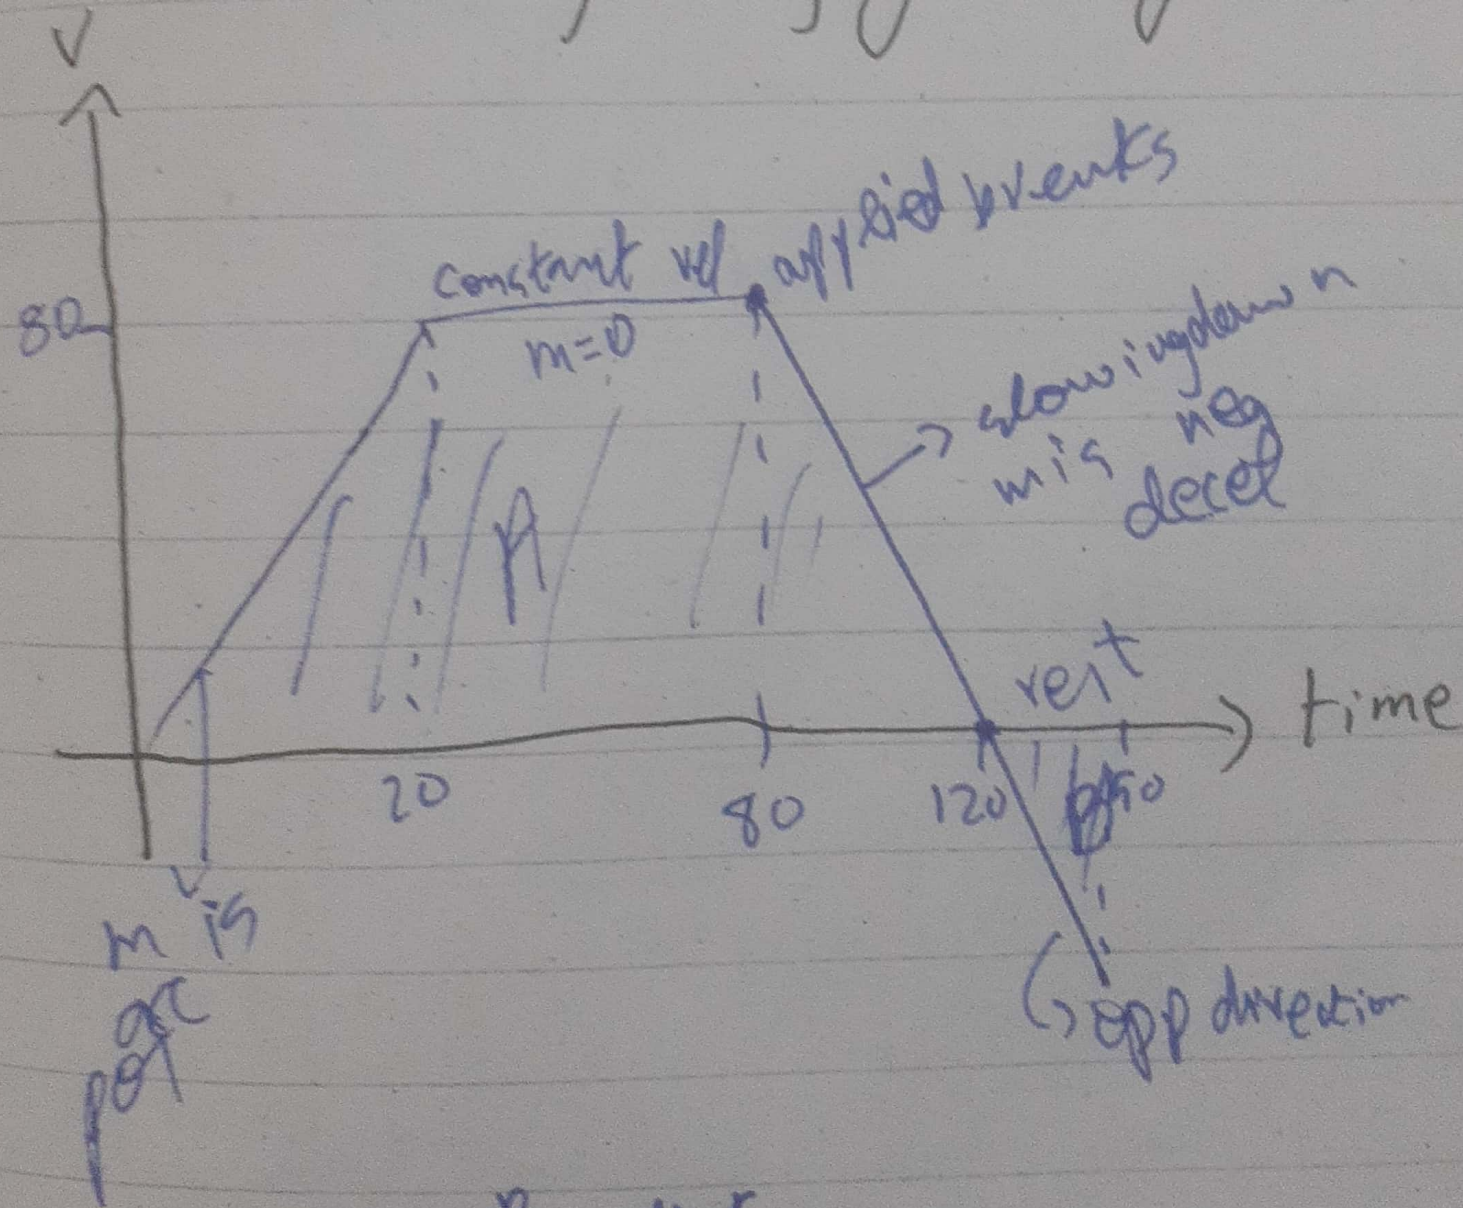 V
80
constant vel
applied breaks
m=0
slowingdown
m is neg
decel
A
rest
time
20
80
120
m is
pos
opp direction